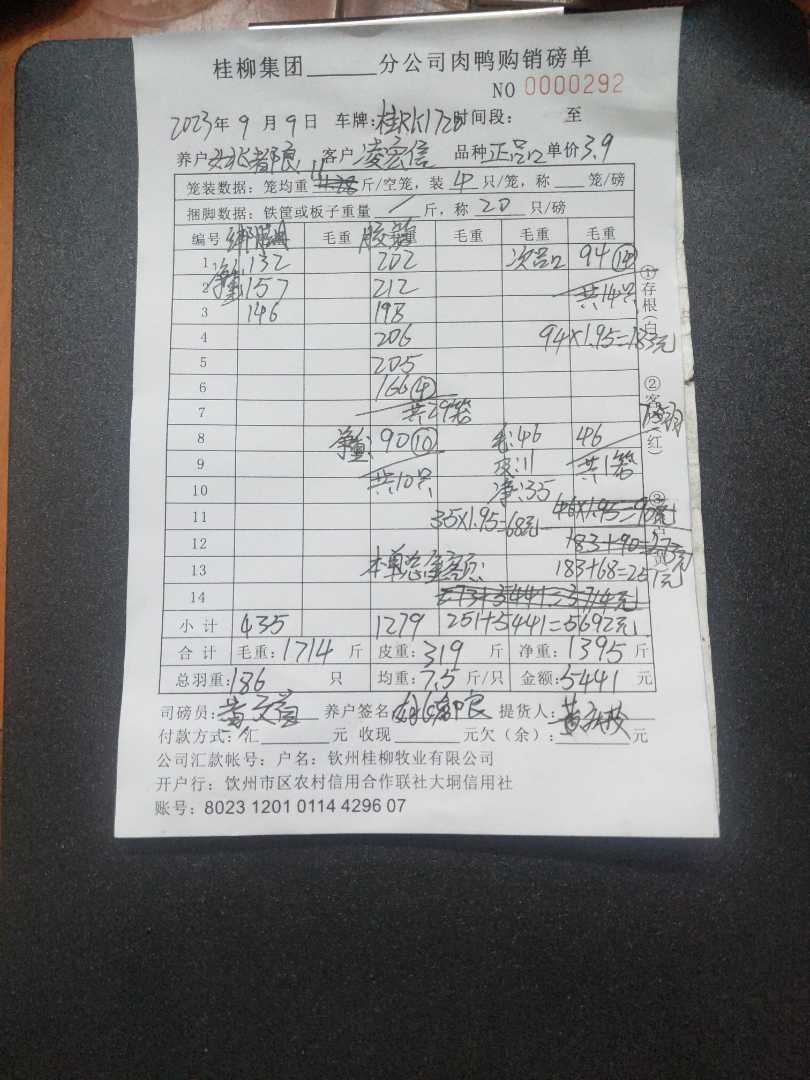 桂柳集团______分公司肉鸭购销磅单
NO 0000292
2023年 9 月 9 日 车牌: 桂RK1728 时间段: 至
养户 都良 客户 凌宏信 品种 正品 单价 3.9
笼装数据: 笼均重 斤/空笼, 装 4 只/笼, 称 ___ 笼/磅
捆脚数据: 铁筐或板子重量 / 斤, 称 20 只/磅
编号 毛重 胶笼 毛重 毛重 毛重
1 净重: 132 202 次品 94 ⑭
2 157 212 共14只
3 146 193
4 206 94×1.95=183元
5 205
6 166 ④
7 共29笼
8 净重: 90 ⑩ 毛:46 46
9 共10只 皮:11 共1笼
10 净:35
11 35×1.95=68元 46×1.95=90元
12 183+90=273元
13 本单总金额: 183+68=251元
14 273+5441=5714元
小 计 435 1279 251+5441=5692元
合 计 毛重: 1714 斤 皮重: 319 斤 净重: 1395 斤
总羽重: 186 只 均重: 7.5 斤/只 金额: 5441 元
司磅员: 养户签名 都良 提货人:
付款方式: 汇______元 收现______元欠(余):______元
公司汇款帐号: 户名: 钦州桂柳牧业有限公司
开户行: 钦州市区农村信用合作联社大垌信用社
账号: 8023 1201 0114 4296 07
①存根(白)
②客 (红)
③